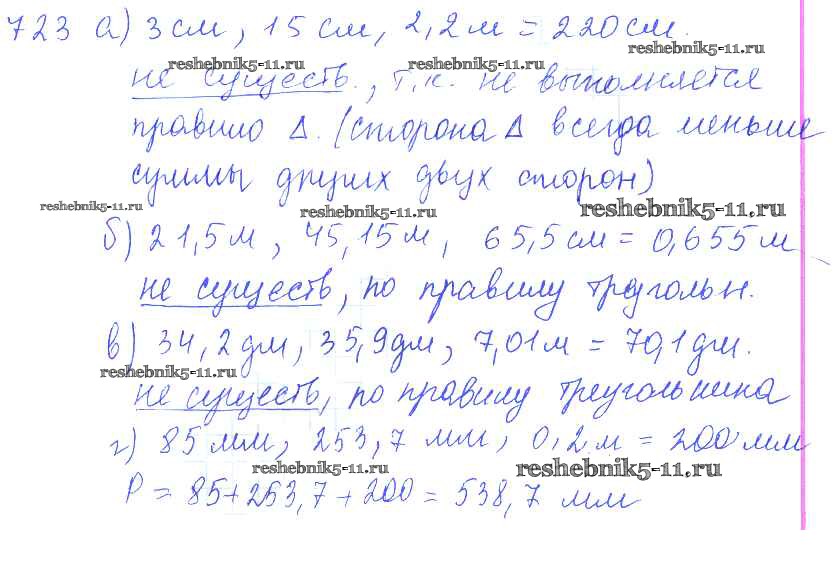 723 а) 3 см, 15 см, 2,2 м = 220 см.
reshebnik5-11.ru
reshebnik5-11.ru reshebnik5-11.ru
не существ., т.к. не выполняется
правило Δ. (сторона Δ всегда меньше
суммы других двух сторон)
reshebnik5-11.ru reshebnik5-11.ru reshebnik5-11.ru
б) 21,5 м, 45,15 м, 65,5 см = 0,655 м
не существ, по правилу треугольн.
в) 34,2 дм, 35,9 дм, 7,01 м = 70,1 дм.
reshebnik5-11.ru
не существ, по правилу треугольника
г) 85 мм, 253,7 мм, 0,2 м = 200 мм
reshebnik5-11.ru reshebnik5-11.ru
P = 85+253,7+200 = 538,7 мм